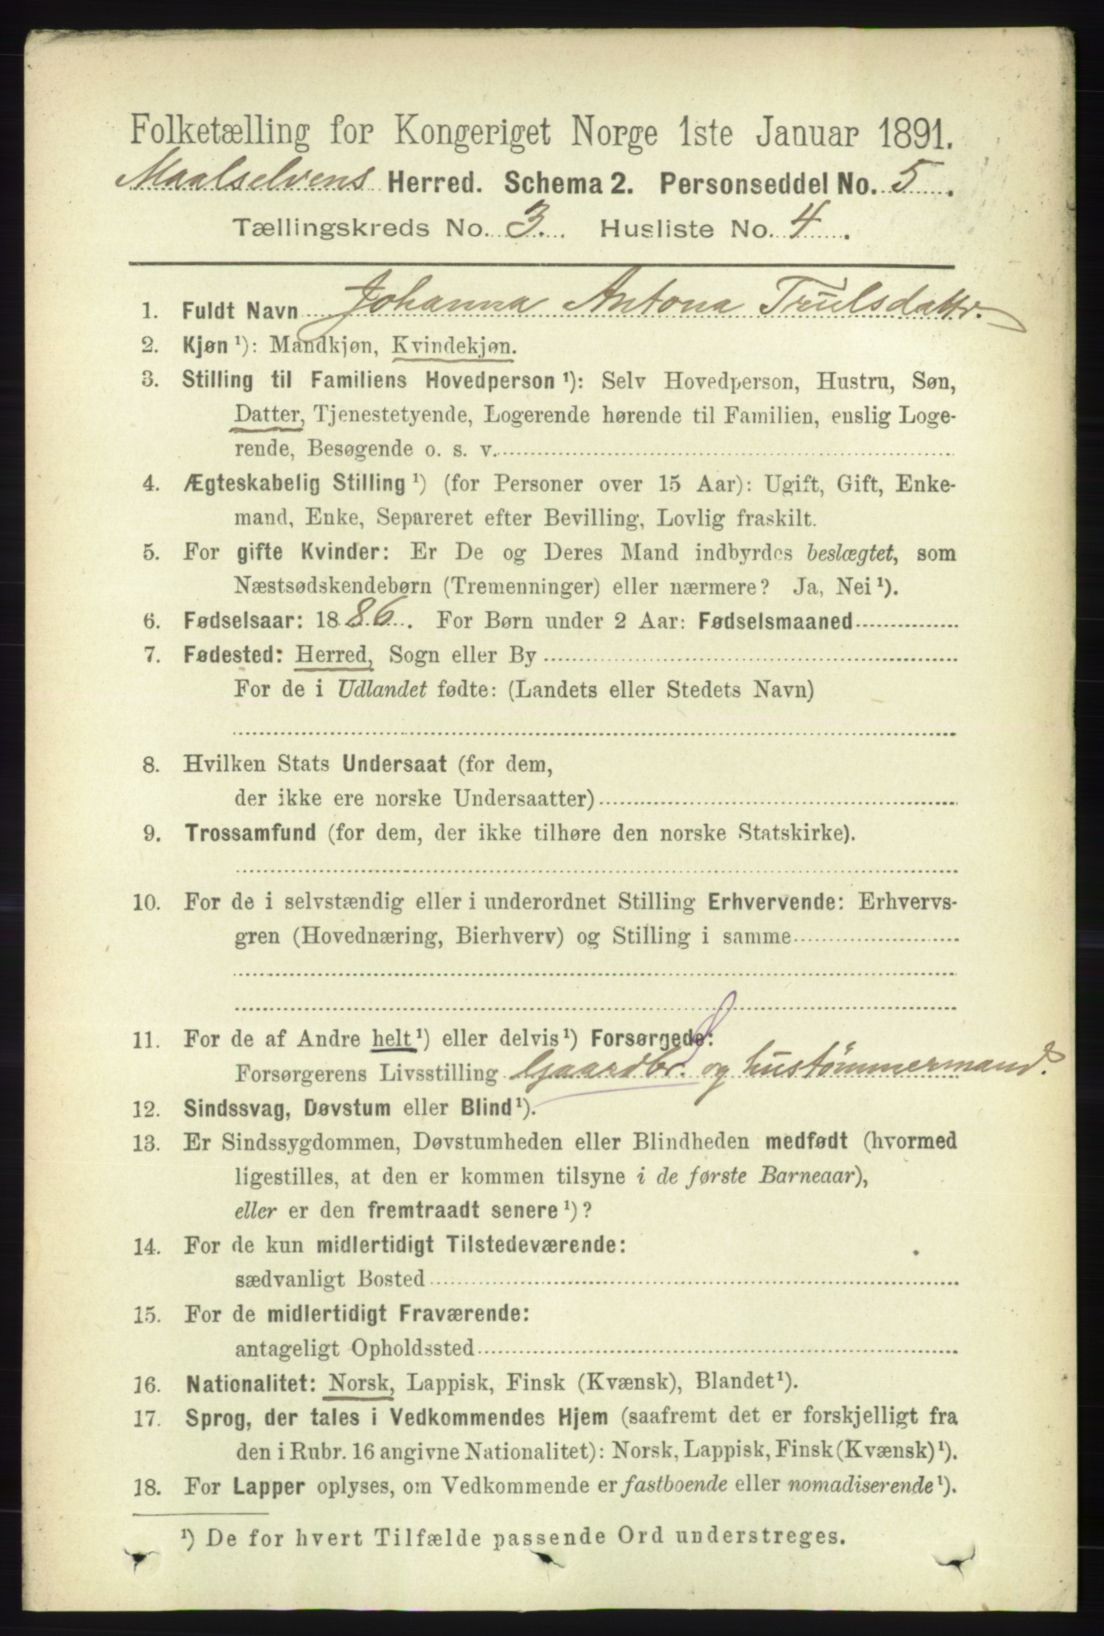 Folketælling for Kongeriget Norge 1ste Januar 1891.
Maalselvens Herred. Schema 2. Personseddel No. 5.
Tællingskreds No. 3. Husliste No. 4.
1. Fuldt Navn Johanna Antona Trulsdattr.
2. Kjøn¹): Mandkjøn, Kvindekjøn.
3. Stilling til Familiens Hovedperson¹): Selv Hovedperson, Hustru, Søn,
Datter, Tjenestetyende, Logerende hørende til Familien, enslig Loge-
rende, Besøgende o. s. v.
4. Ægteskabelig Stilling¹) (for Personer over 15 Aar): Ugift, Gift, Enke-
mand, Enke, Separeret efter Bevilling, Lovlig fraskilt.
5. For gifte Kvinder: Er De og Deres Mand indbyrdes beslægtet, som
Næstsødskendebørn (Tremenninger) eller nærmere? Ja, Nei¹).
6. Fødselsaar: 1886. For Børn under 2 Aar: Fødselsmaaned
7. Fødested: Herred, Sogn eller By
For de i Udlandet fødte: (Landets eller Stedets Navn)
8. Hvilken Stats Undersaat (for dem,
der ikke ere norske Undersaatter)
9. Trossamfund (for dem, der ikke tilhøre den norske Statskirke).
10. For de i selvstændig eller i underordnet Stilling Erhvervende: Erhvervs-
gren (Hovednæring, Bierhverv) og Stilling i samme
11. For de af Andre helt¹) eller delvis¹) Forsørgede:
Forsørgerens Livsstilling Gaardbr. og hustømmermand.
12. Sindssvag, Døvstum eller Blind¹).
13. Er Sindssygdommen, Døvstumheden eller Blindheden medfødt (hvormed
ligestilles, at den er kommen tilsyne i de første Barneaar),
eller er den fremtraadt senere¹)?
14. For de kun midlertidigt Tilstedeværende:
sædvanligt Bosted
15. For de midlertidigt Fraværende:
antageligt Opholdssted
16. Nationalitet: Norsk, Lappisk, Finsk (Kvænsk), Blandet¹).
17. Sprog, der tales i Vedkommendes Hjem (saafremt det er forskjelligt fra
den i Rubr. 16 angivne Nationalitet): Norsk, Lappisk, Finsk (Kvænsk)¹).
18. For Lapper oplyses, om Vedkommende er fastboende eller nomadiserende¹).
¹) De for hvert Tilfælde passende Ord understreges.